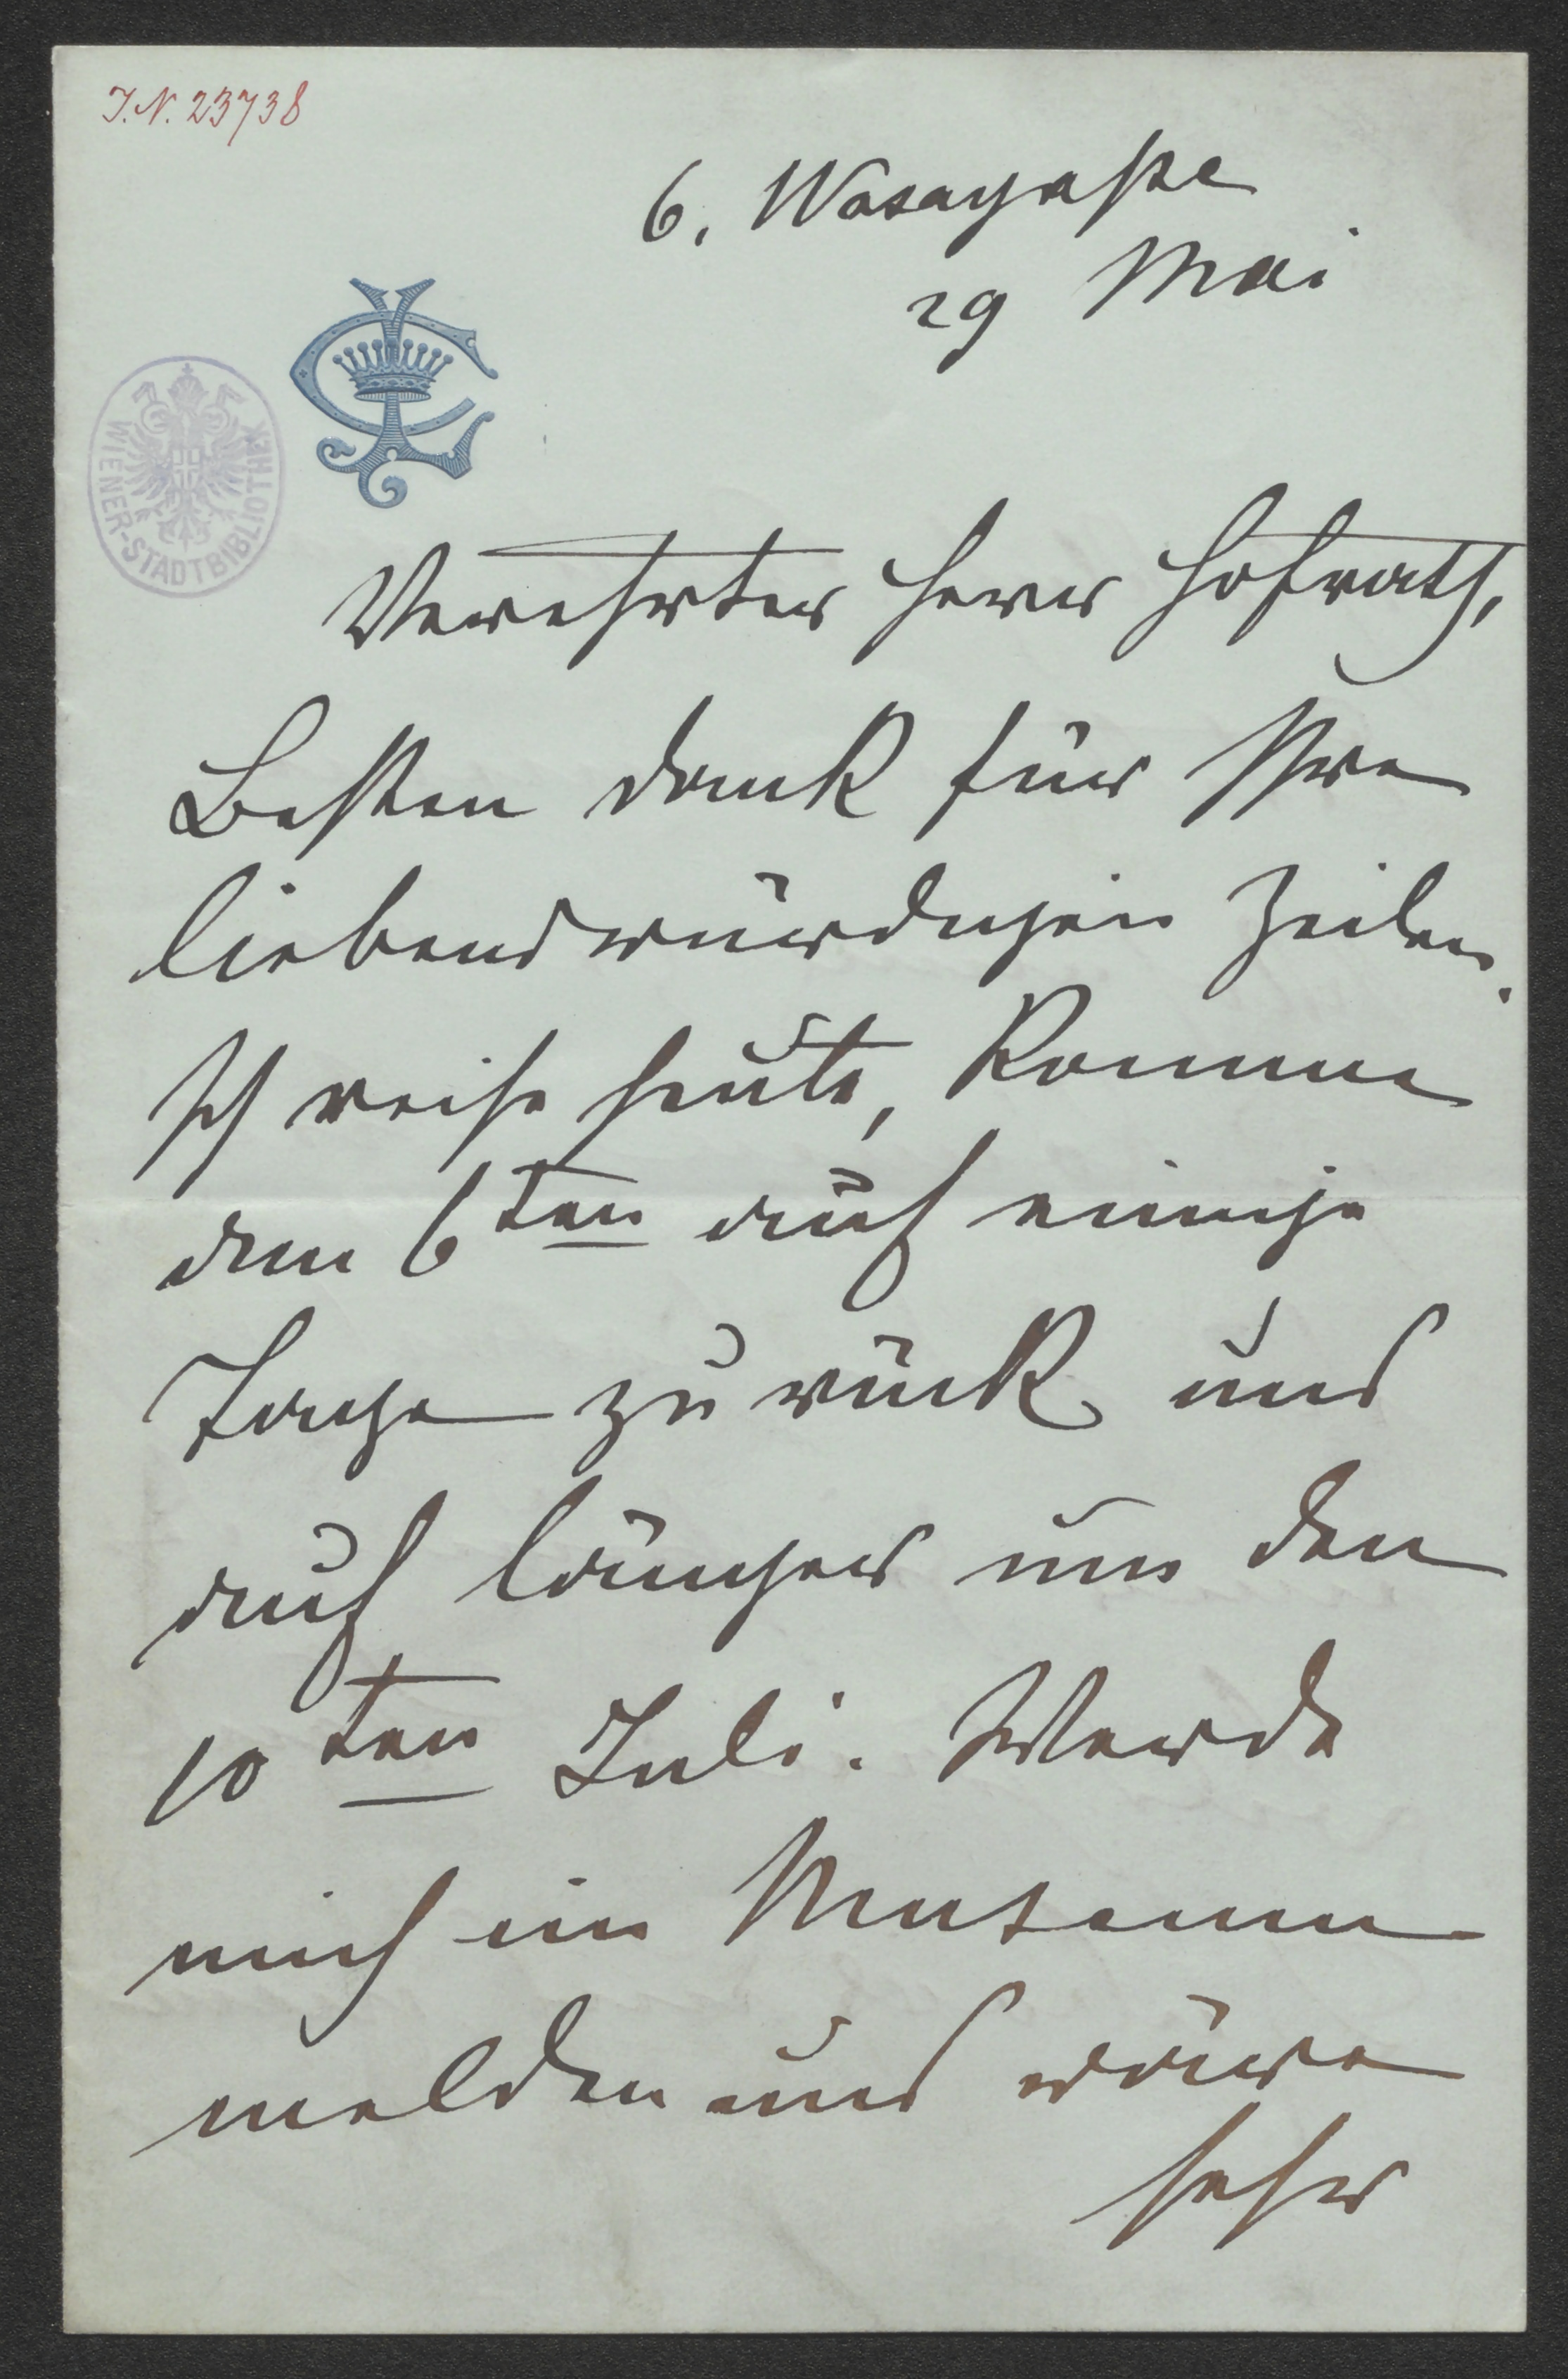 I.N. 23738
6. Wasagasse
29 Mai
WIENER-STADTBIBLIOTHEK
Verehrter Herr Hofrath,
Besten Dank für Ihre
liebenswürdigen Zeilen.
Ich reise heute, komme
den 6ten auf einige
Tage zurück und
auf länger um den
10ten Juli. Werde
mich im Museum
melden und wäre
sehr